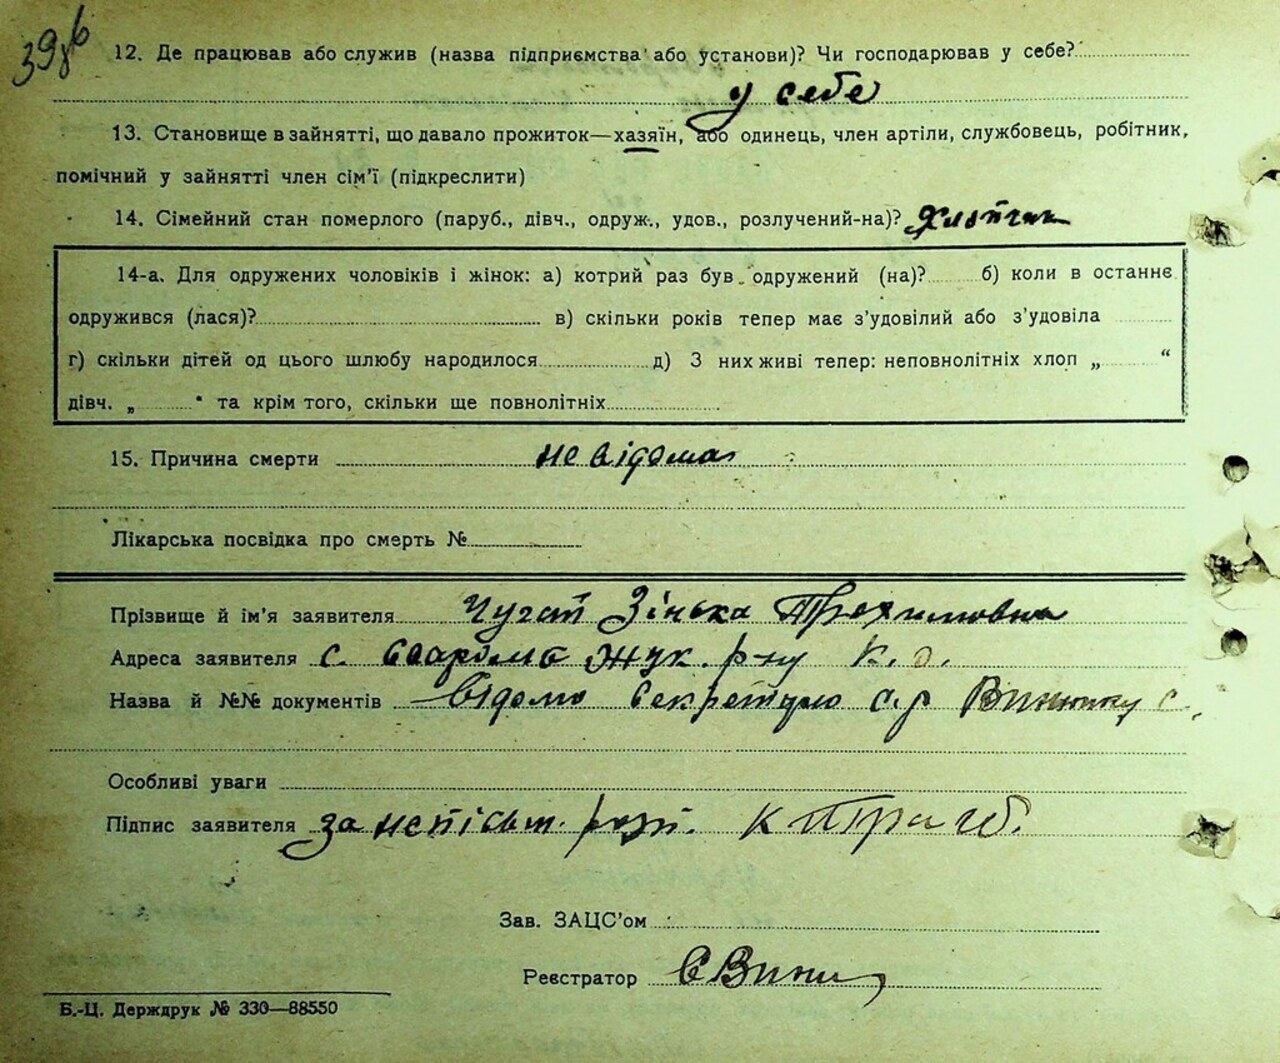 39зв
12. Де працював або служив (назва підприємства або установи)? Чи господарював у себе?
у себе
13. Становище в зайнятті, що давало прожиток—хазяїн, або одинець, член артіли, службовець, робітник,
помічний у зайнятті член сім'ї (підкреслити)
14. Сімейний стан померлого (паруб., дівч., одруж., удов., розлучений-на)? Хлопчик
14-а. Для одружених чоловіків і жінок: а) котрий раз був одружений (на)? б) коли в останнє
одружився (лася)? в) скільки років тепер має з'удовілий або з'удовіла
г) скільки дітей од цього шлюбу народилося д) З них живі тепер: неповнолітніх хлоп „ “
дівч. „ “ та крім того, скільки ще повнолітніх
15. Причина смерти невідома
Лікарська посвідка про смерть №
Прізвище й ім'я заявителя Чугай Зінька Трохимовна
Адреса заявителя с. р-ну К. о.
Назва й №№ документів Відомо секретарю с.р Виннику С.
Особливі уваги
Підпис заявителя за непісьм. розп.
Зав. ЗАЦС'ом
Реєстратор СВинн
Б.-Ц. Держдрук № 330—88550